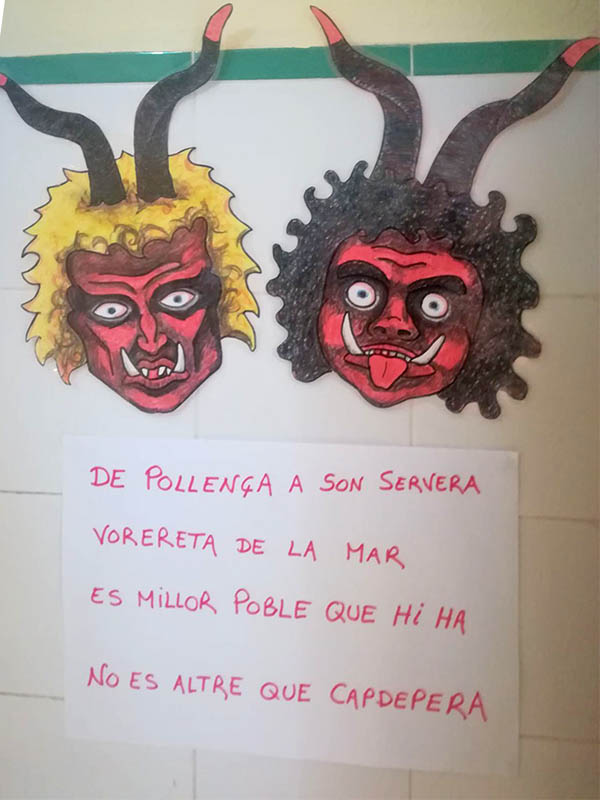 DE POLLENÇA A SON SERVERA
VORERETA DE LA MAR
ES MILLOR POBLE QUE Hi HA
NO ES ALTRE QUE CAPDEPERA